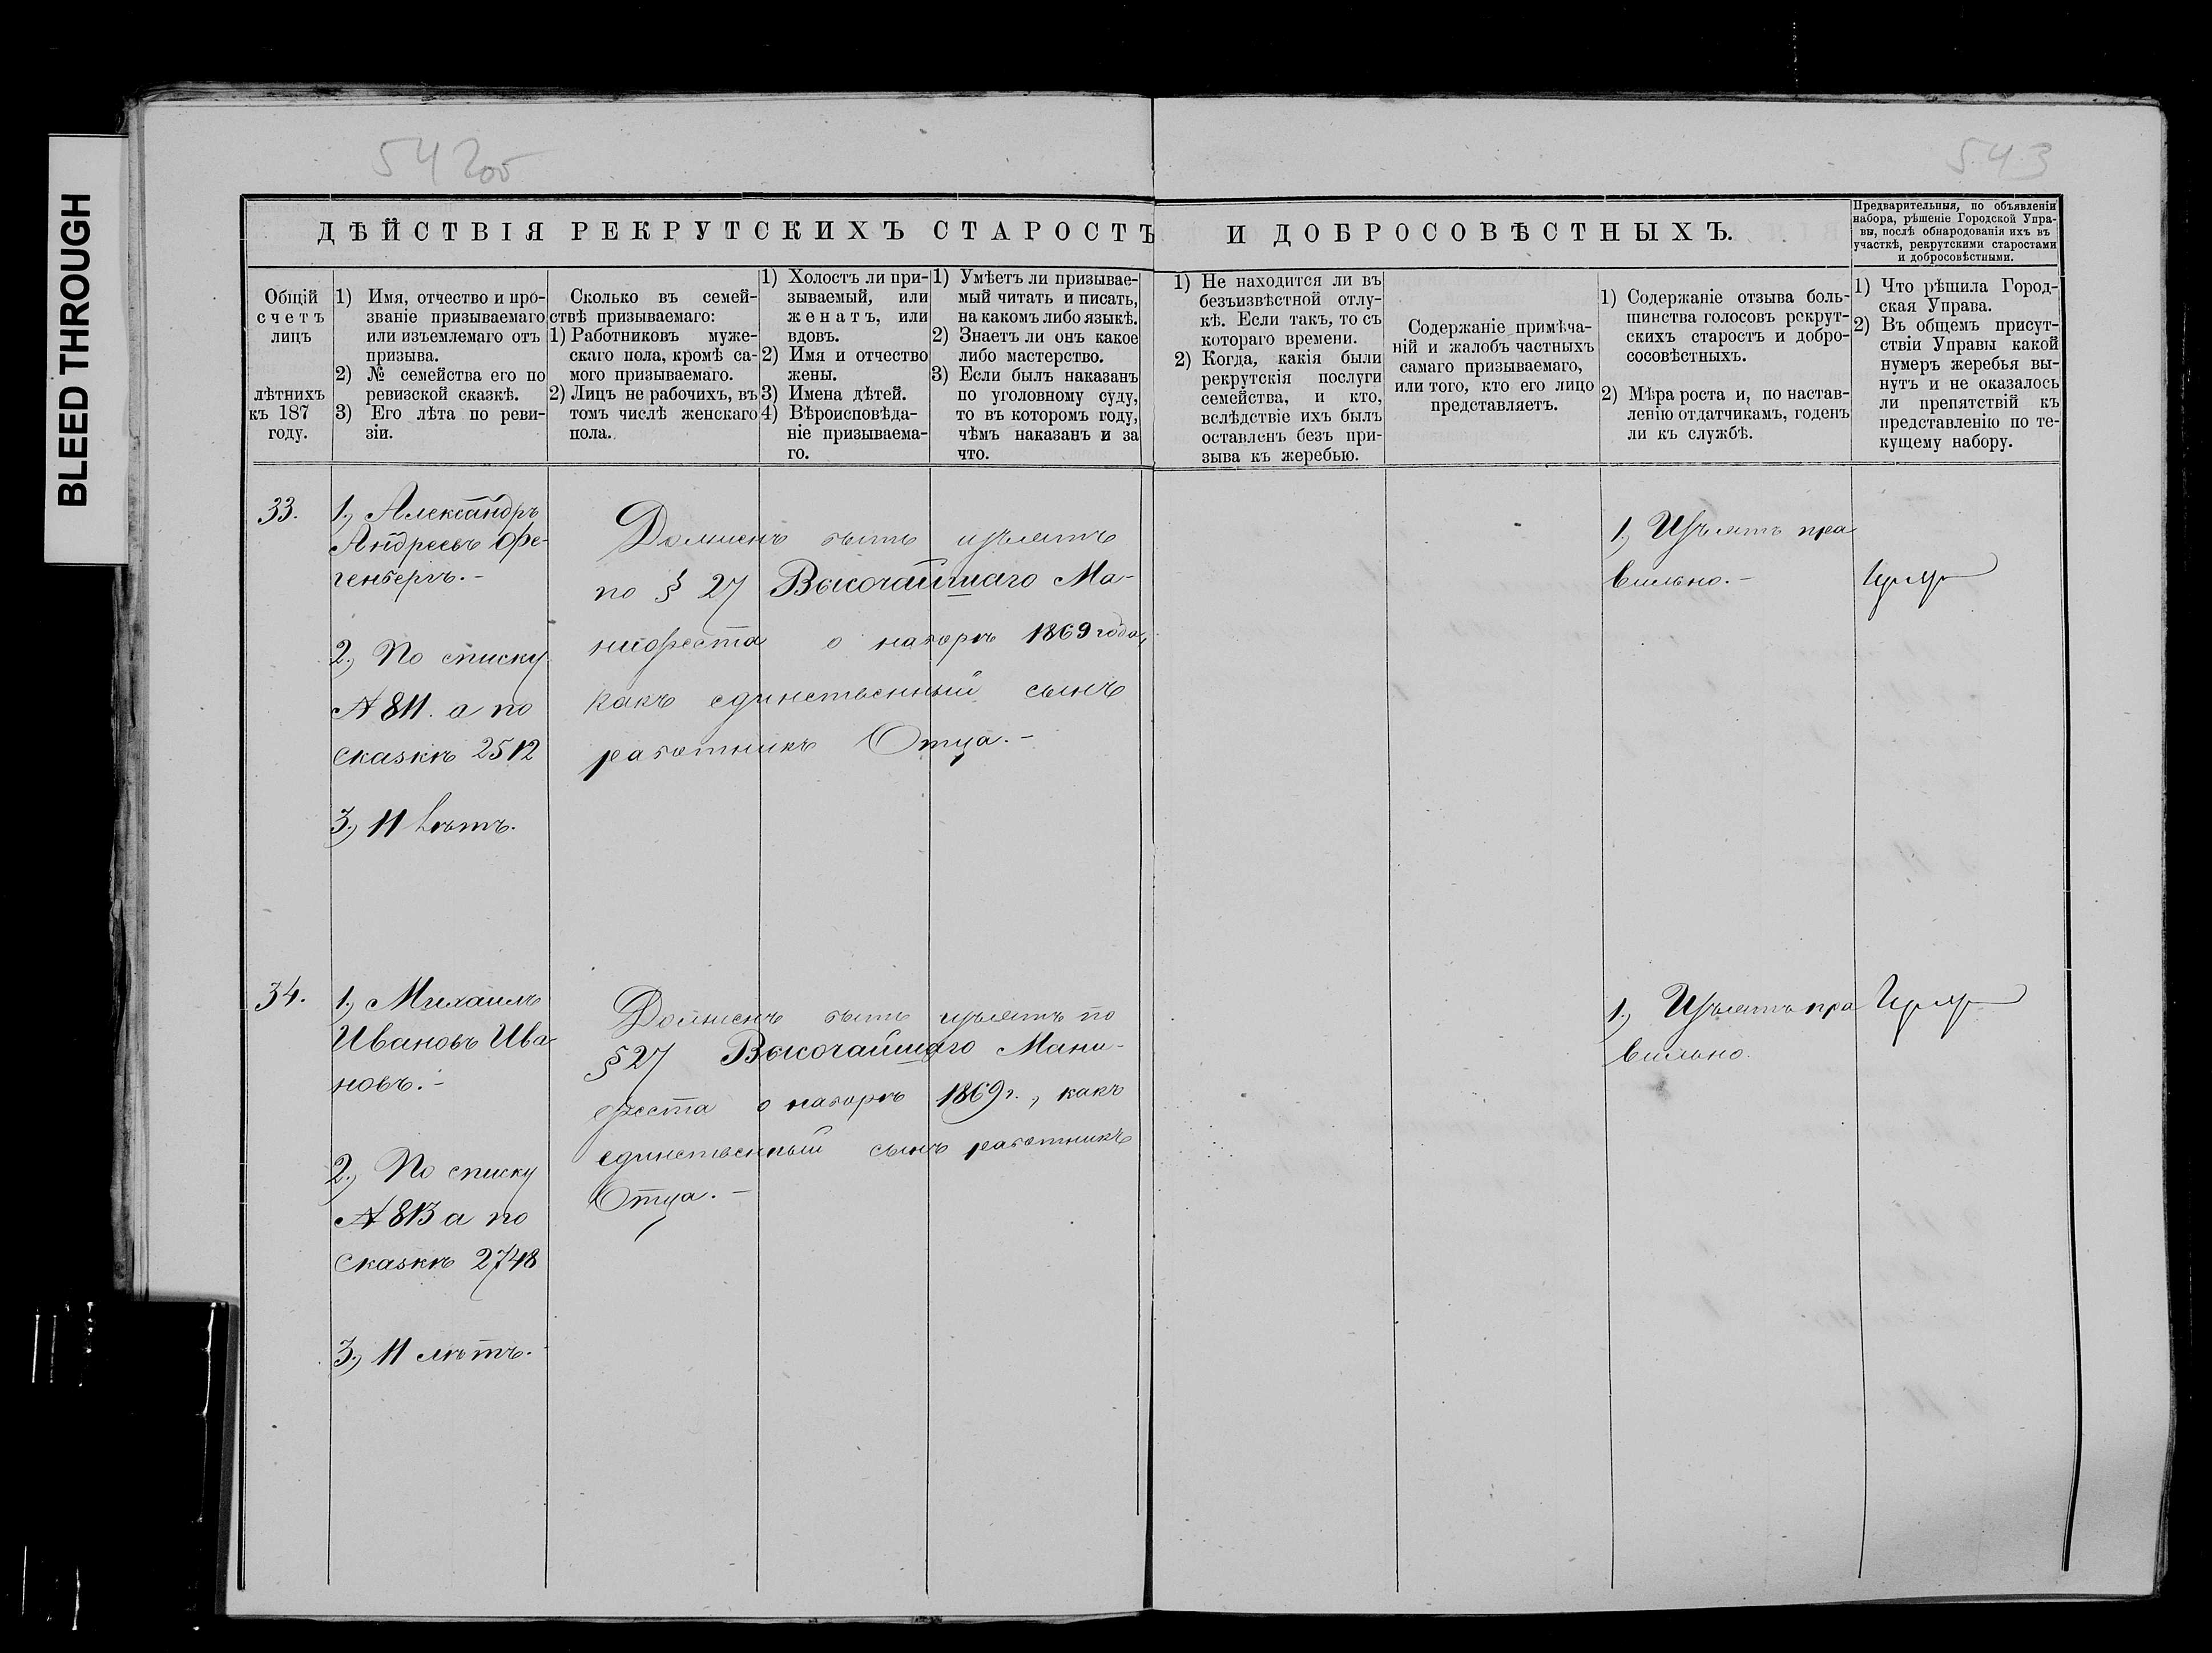 BLEED THROUGH
542об
543
ДѢЙСТВІЯ РЕКРУТСКИХЪ СТАРОСТЪ
И ДОБРОСОВѢСТНЫХЪ.
Предварительныя, по объявленіи
набора, рѣшеніе Городской Упра-
вы, послѣ обнародованія ихъ въ
участкѣ, рекрутскими старостами
и добросовѣстными.
Общій
счетъ
лицъ
лѣтнихъ
къ 187
году.
1) Имя, отчество и про-
званіе призываемаго
или изъемлемаго отъ
призыва.
2) № семейства его по
ревизской сказкѣ.
3) Его лѣта по реви-
зіи.
Сколько въ семей-
ствѣ призываемаго:
1) Работниковъ муже-
скаго пола, кромѣ са-
мого призываемаго.
2) Лицъ не рабочихъ, въ
томъ числѣ женскаго
пола.
1) Холостъ ли при-
зываемый, или
женатъ, или
вдовъ.
2) Имя и отчество
жены.
3) Имена дѣтей.
4) Вѣроисповѣда-
ніе призываема-
го.
1) Умѣетъ ли призывае-
мый читать и писать,
на какомъ либо языкѣ.
2) Знаетъ ли онъ какое
либо мастерство.
3) Если былъ наказанъ
по уголовному суду,
то въ которомъ году,
чѣмъ наказанъ и за
что.
1) Не находится ли въ
безъизвѣстной отлу-
кѣ. Если такъ, то съ
котораго времени.
2) Когда, какія были
рекрутскія послуги
семейства, и кто,
вслѣдствіе ихъ былъ
оставленъ безъ при-
зыва къ жеребью.
Содержаніе примѣча-
ній и жалобъ частныхъ
самаго призываемаго,
или того, кто его лицо
представляетъ.
1) Содержаніе отзыва боль-
шинства голосовъ рекрут-
скихъ старостъ и добро-
совѣстныхъ.
2) Мѣра роста и, по настав-
ленію отдатчикамъ, годенъ
ли къ службѣ.
1) Что рѣшила Город-
ская Управа.
2) Въ общемъ присут-
ствіи Управы какой
нумеръ жеребья вы-
нутъ и не оказалось
ли препятствій къ
представленію по те-
кущему набору.
33.
1., Александръ
Андреевъ Фре-
генбергъ.-
2., По списку
№ 811. а по
Сказкѣ 2512
3., 11 Лѣтъ.
Долженъ быть изъятъ
по § 27 Высочайшаго Ма-
нифеста о наборѣ 1869 года,
какъ единственный сынъ
работникъ Отца.-
1., Изъятъ пра
вильно.-
34.
1., Михаилъ
Ивановъ Ива
новъ.-
2., По списку
№ 813 а по
Сказкѣ 2748
3., 11 лѣтъ.-
Долженъ быть изъятъ по
§ 27 Высочайшаго Мани-
феста о наборѣ 1869 г., какъ
единственный сынъ работникъ
Отца.-
1., Изъятъ пра
вильно.